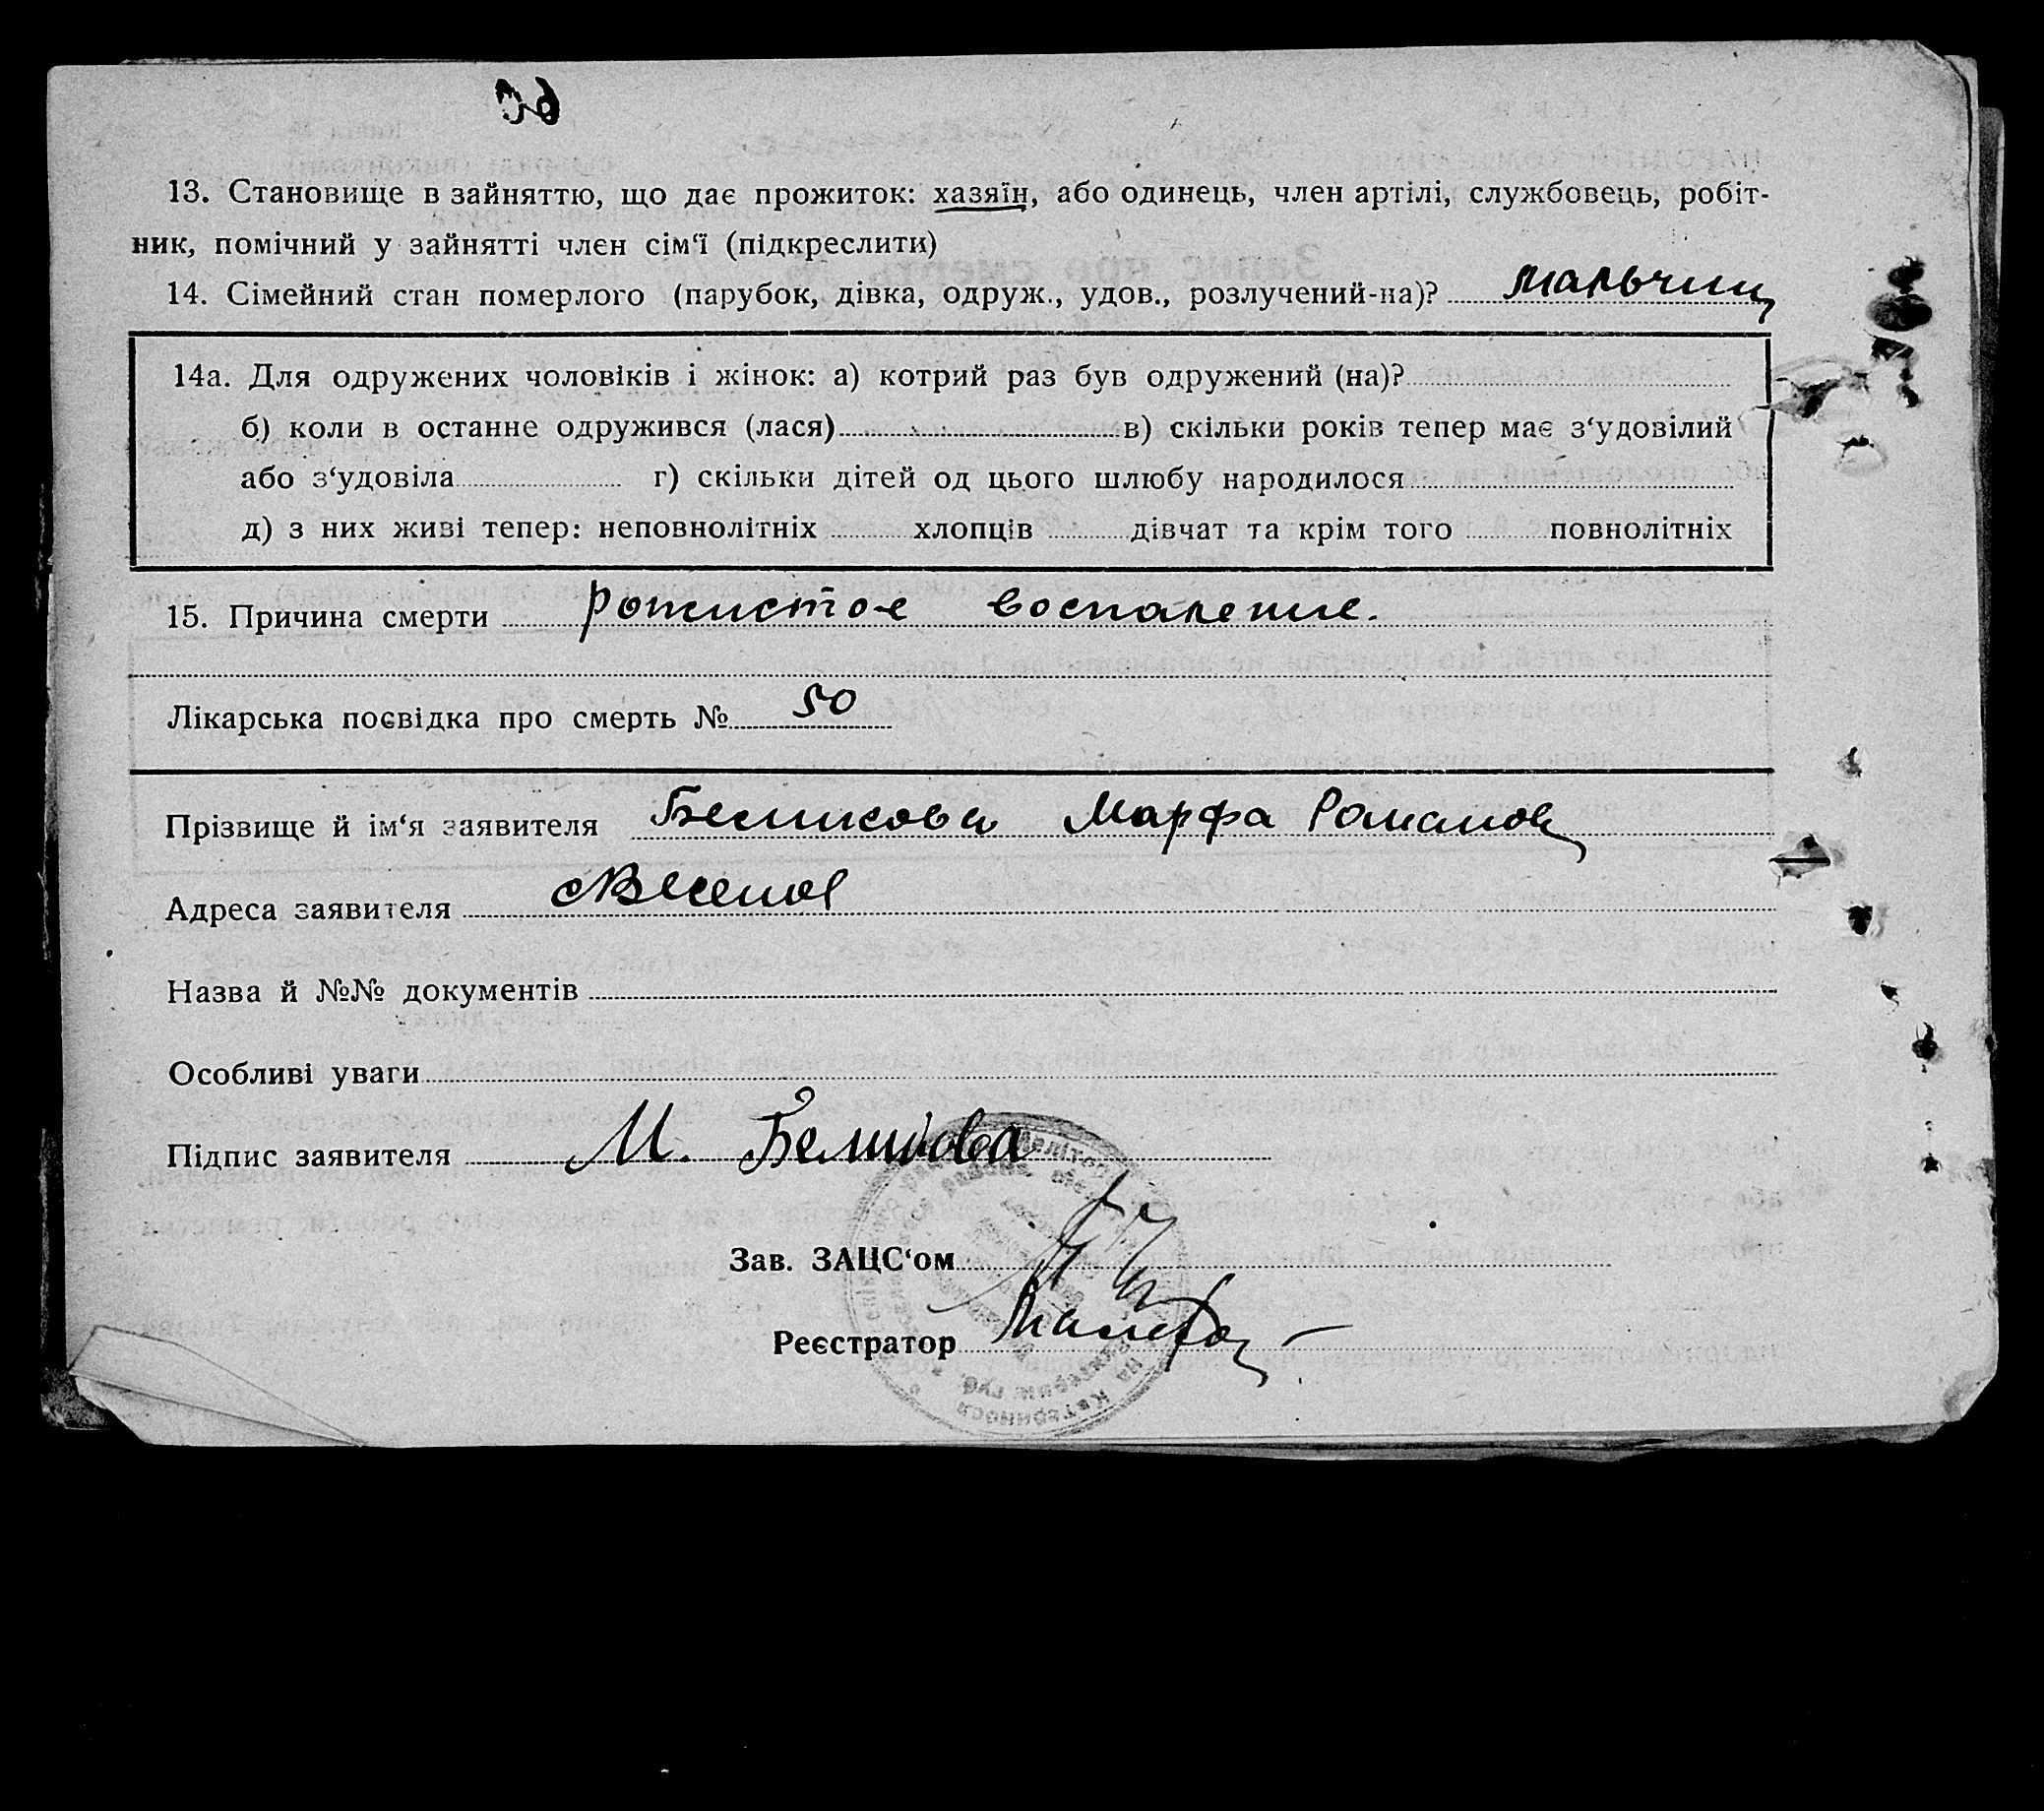 13. Становище в зайняттю, що дає прожиток: хазяїн, або одинець, член артілі, службовець, робіт-
ник, помічний у зайнятті член сім‘ї (підкреслити)
14. Сімейний стан померлого (парубок, дівка, одруж., удов., розлучений-на)? мальчик
14а. Для одружених чоловіків і жінок: а) котрий раз був одружений (на)?
б) коли в останне одружився (лася) в) скільки років тепер має з‘удовілий
або з‘удовіла г) скільки дітей од цього шлюбу народилося
д) з них живі тепер: неповнолітніх хлопців дівчат та крім того повнолітніх
15. Причина смерти рожистое воспаление.
Лікарська посвідка про смерть № 50
Прізвище й ім‘я заявителя Беликова Марфа Романов
Адреса заявителя
Назва й №№ документів
Особливі уваги
Підпис заявителя М. Беликова
Зав. ЗАЦС‘ом
Реєстратор